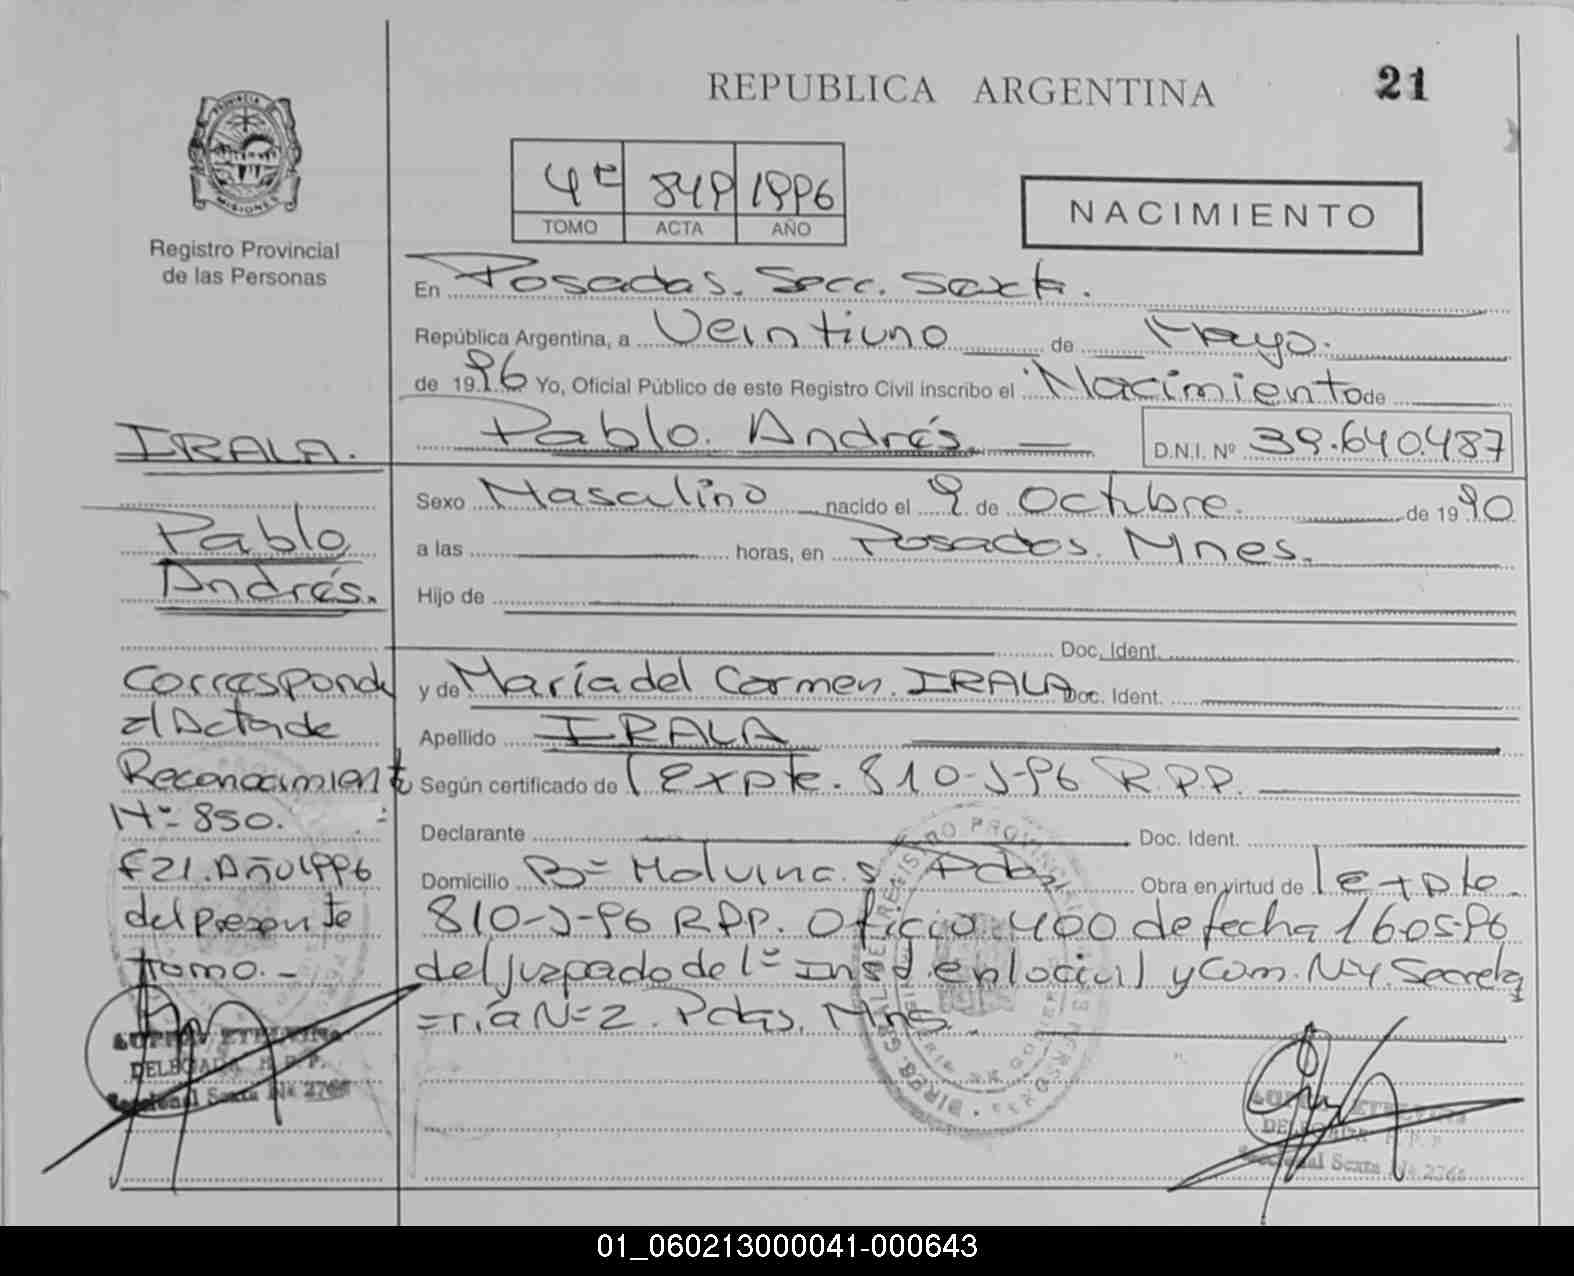 REPUBLICA ARGENTINA
21
PROVINCIA
MISIONES
Registro Provincial
de las Personas
4t 849 1996
TOMO ACTA AÑO
NACIMIENTO
En Posadas. Secc. Sexta.
República Argentina, a Veintiuno de Mayo.
de 1996 Yo, Oficial Público de este Registro Civil inscribo el Nacimiento de
Pablo. Andrés. D.N.I. Nº 39.640.487
Sexo Masculino nacido el 9 de Octubre. de 1990
a las horas, en Posadas. Mnes.
Hijo de
Doc. Ident.
y de María del Carmen. IRALA. Doc. Ident.
Apellido IRALA
Según certificado de Expte. 810-J-96 R.P.P.
Declarante Doc. Ident.
Domicilio Bº Malvinas Pdas Obra en virtud de Expte.
810-J-96 RPP. Oficio 400 de fecha 16.05.96
del Juzgado de 1º Inst. en lo civil y Com. Nº4. Secreta
=ría Nº2. Pdas. Mns.
IRALA.
Pablo
Andrés.
Corresponde
al Acta de
Reconocimiento
Nº 850.
F21. Año 1996
del presente
Tomo.-
DELEGADA R.P.P.
Seccional Sexta Nº 2766
DELEGADA R.P.P.
Seccional Sexta Nº 2766
01_060213000041-000643